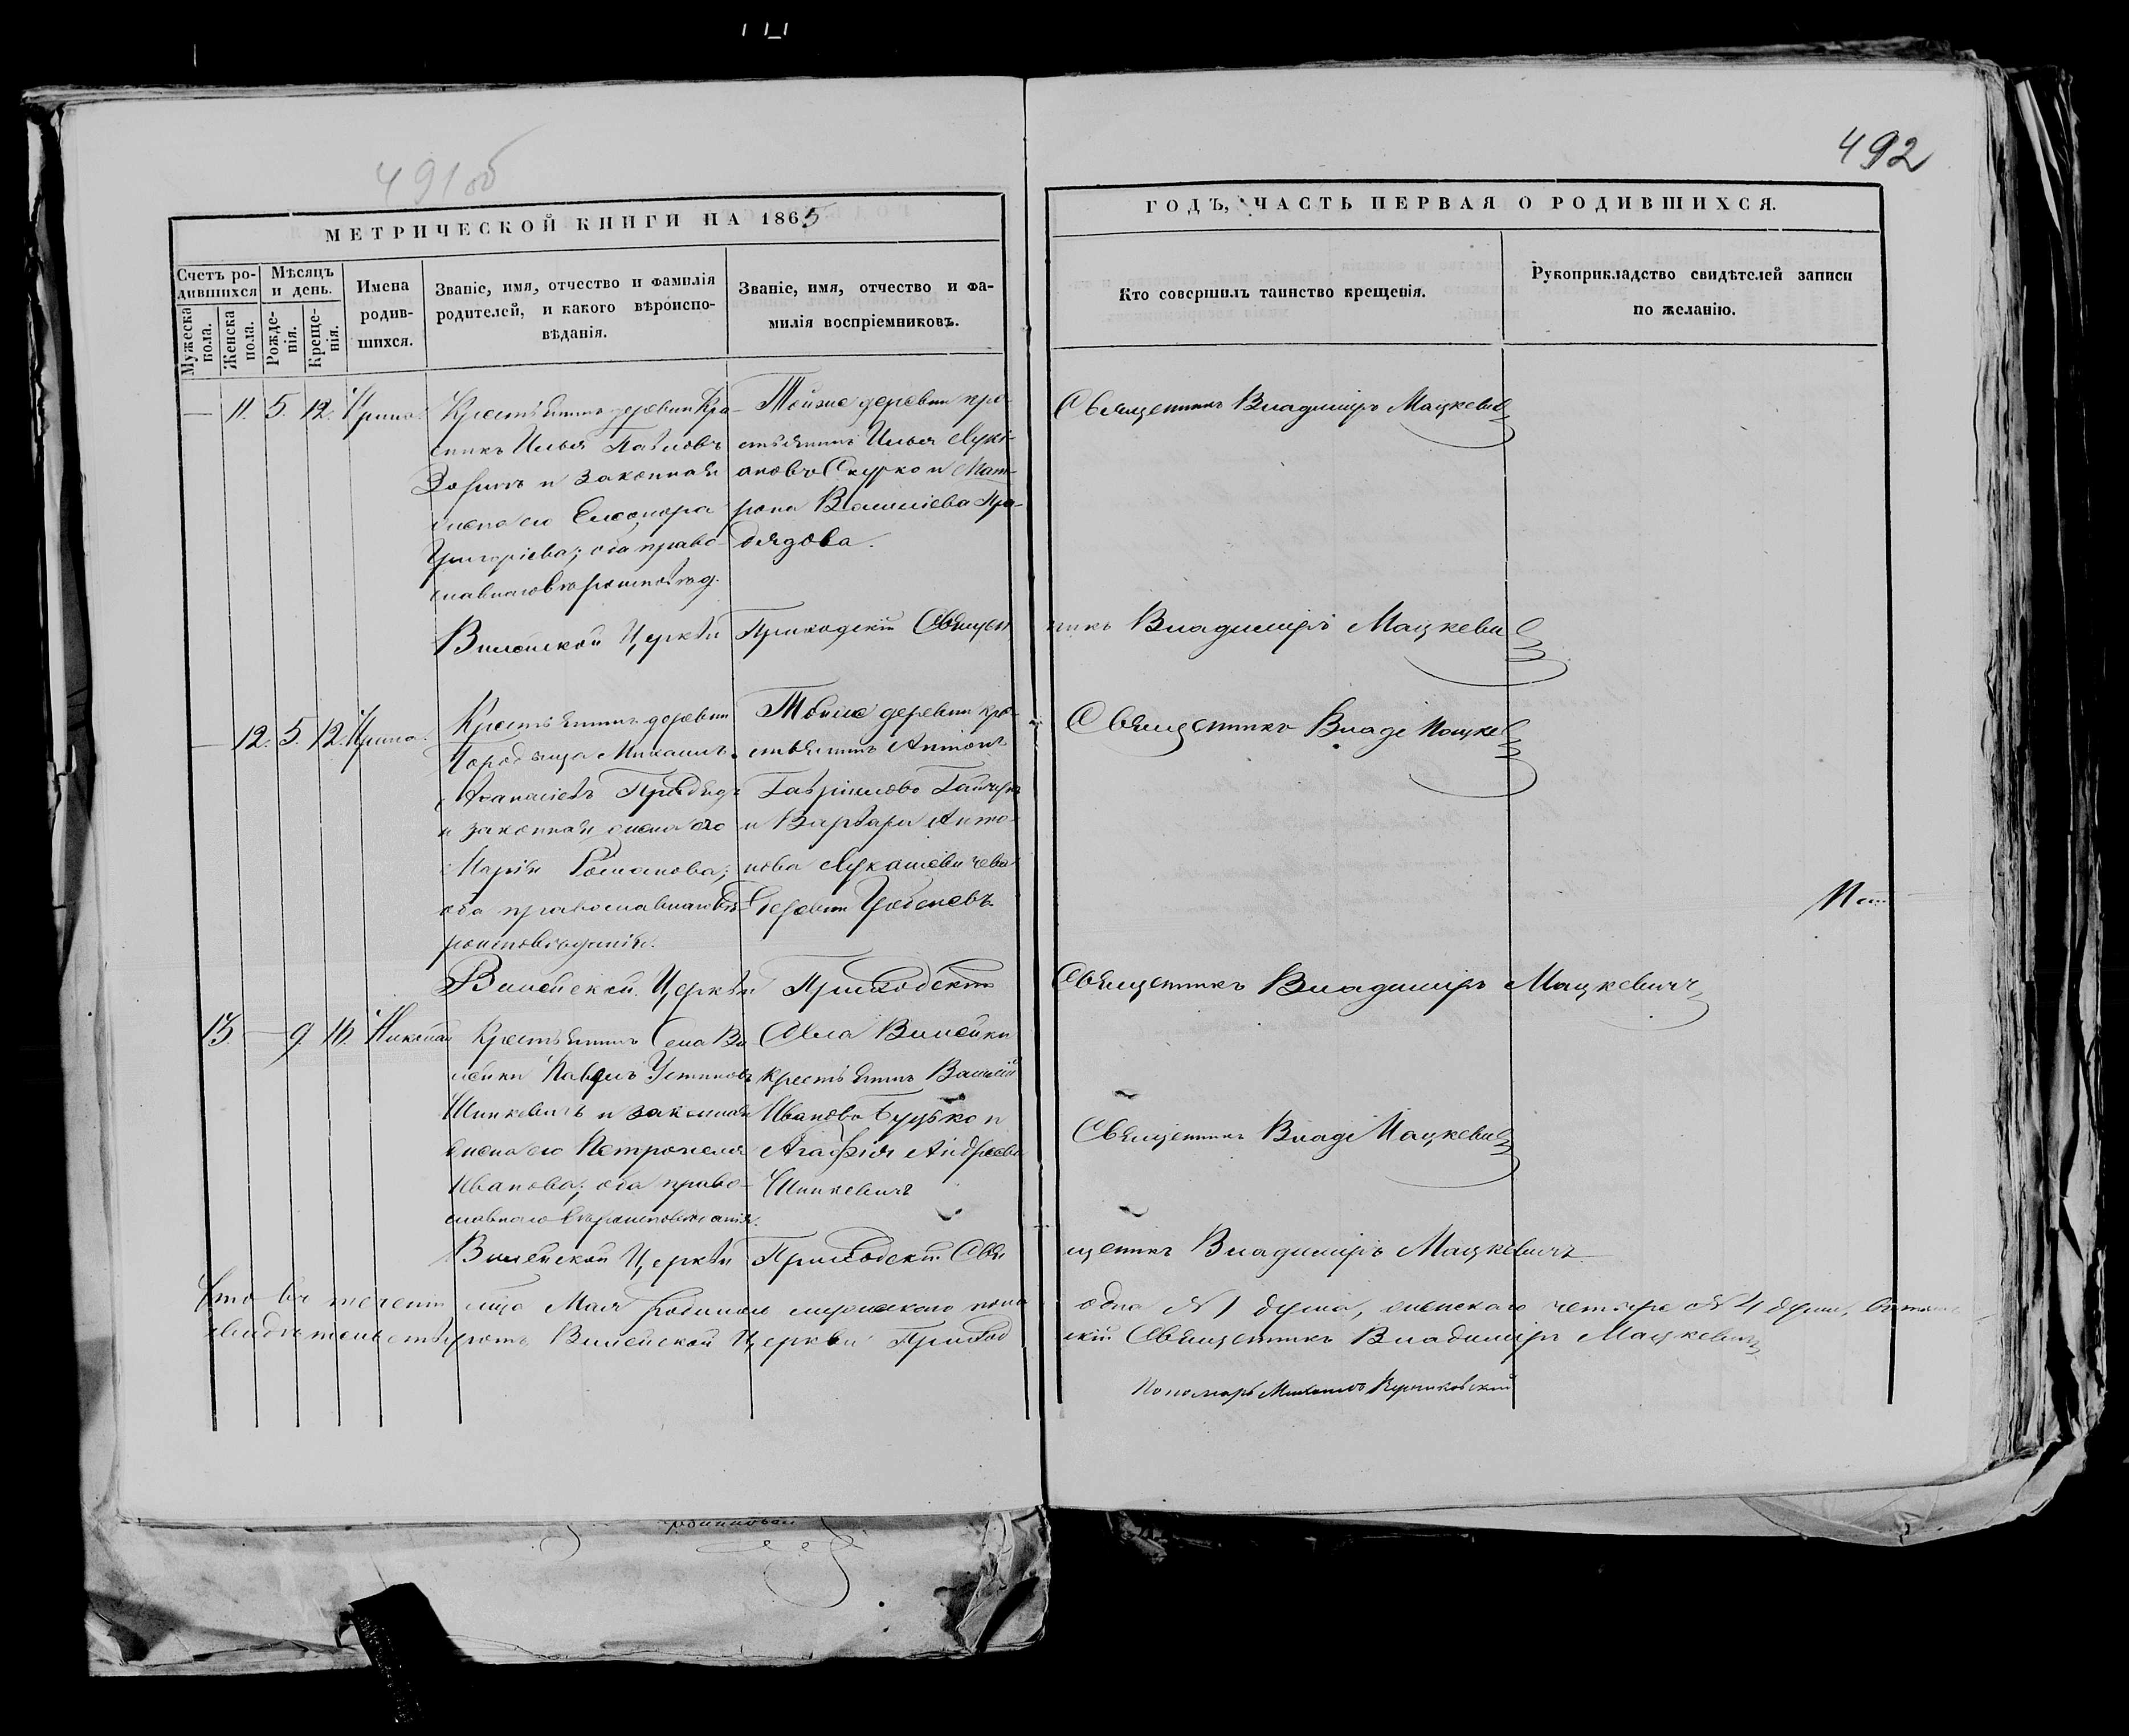 491об
492
МЕТРИЧЕСКОЙ КНИГИ НА 1865
ГОДЪ, ЧАСТЬ ПЕРВАЯ О РОДИВШИХСЯ.
Счетъ родившихся
Мужеска пола.
Женска пола.
Мѣсяцъ и день.
Рожденія.
Крещенія.
Имена родившихся.
Званіе, имя, отчество и фамилія родителей, и какого вѣроисповѣданія.
Званіе, имя, отчество и фамилія воспріемниковъ.
Кто совершилъ таинство крещенія.
Рукоприкладство свидѣтелей записи по желанію.
— 11. 5. 12. Ирина.
Крестьянинъ деревни Кра-
Илья Павловъ
и законная
жена его Елеонора
Григоріева; оба право-
славнаго вѣроисповѣд.
Тойже деревни кре-
стьянинъ Илья Лукі-
ановъ Скурко и Мат-
рона Василіева Пра-
дѣдова.
Священникъ Владиміръ Мацкевич
Вилейской Церкви Приходскій Священ
никъ Владиміръ Мацкевич
— 12. 5. 12. Ирина.
Крестьянинъ деревни
Городища Михаилъ
Афанасіевъ Прадѣдъ
и законная жена его
Марія Романова;
оба православнаго вѣ-
роисповѣданія.
Тойже деревни кре-
стьянинъ Антонъ
Гавріиловъ
и Варвара Анто-
нова Лукашевичева
деревни
Священникъ Влади Мацкев
Вилейской Церкви Приходскій
Священникъ Владиміръ Мацкевичъ
13. — 9. 16. Николай
Крестьянинъ Села Ви
лейки Павелъ Устиновъ
Шинкевичъ и законная
жена его Петронеля
Иванова; оба право-
славнаго вѣроисповѣданія.
Села Вилейки
крестьянинъ Василій
Ивановъ Будько и
Агафія Андреева
Шинкевичъ
Священникъ Влади Мацкевич
Вилейской Церкви Приходскій Свя
щенникъ Владиміръ Мацкевичъ
Что въ теченіи м͠ца Мая родилось мужескаго пола
одна №1 душа, женскаго четыре №4 души, въ томъ
свидѣтельствуютъ Вилейской Церкви Приход
скій Священникъ Владиміръ Мацкевичъ
Пономарь Михаилъ